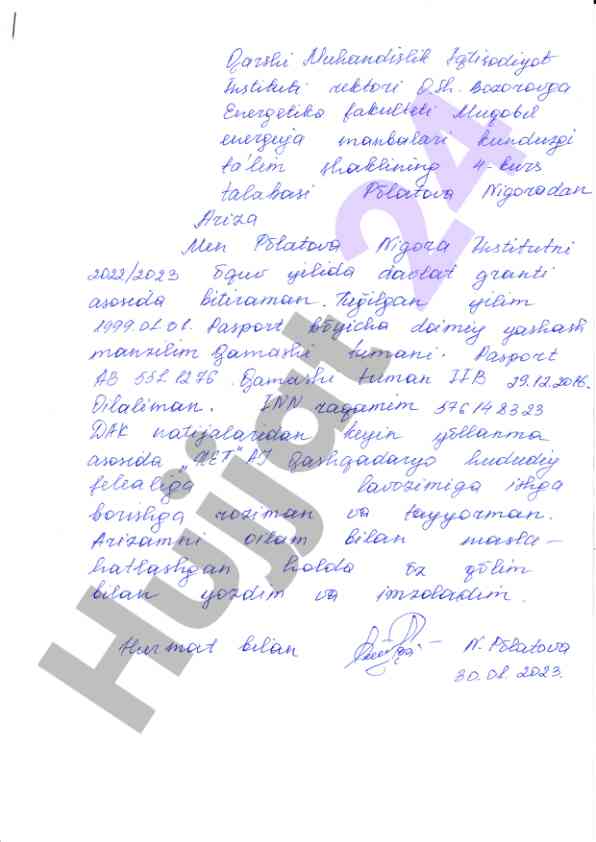 Qarshi Muhandislik Iqtisodiyot
Instituti rektori O.Sh. Bozorovga
Energetika fakulteti Muqobil
energiya manbalari kunduzgi
ta'lim shaklining 4-kurs
talabasi Põlatova Nigoradan
Ariza
Men Põlatova Nigora Institutni
2022/2023 õquv yilida davlat granti
asosida bitiraman. Tuğilgan yilim
1999.01.01. Pasport bõyicha doimiy yashash
manzilim Qamashi tumani. Pasport
AB 5521276. Qamashi tuman IIB 29.12.2016.
Oilaliman. INN raqamim 576148323
DAK natijalaridan keyin yõllanma
asosida „HET" AJ Qashqadaryo hududiy
filealiga lavozimiga ishga
borishga roziman va tayyorman.
Arizamni oilam bilan masla-
hatlashgan holda õz qõlim
bilan yozdim va imzoladim.
Hurmat bilan N. Põlatova
30.01.2023.
Hujjat 24